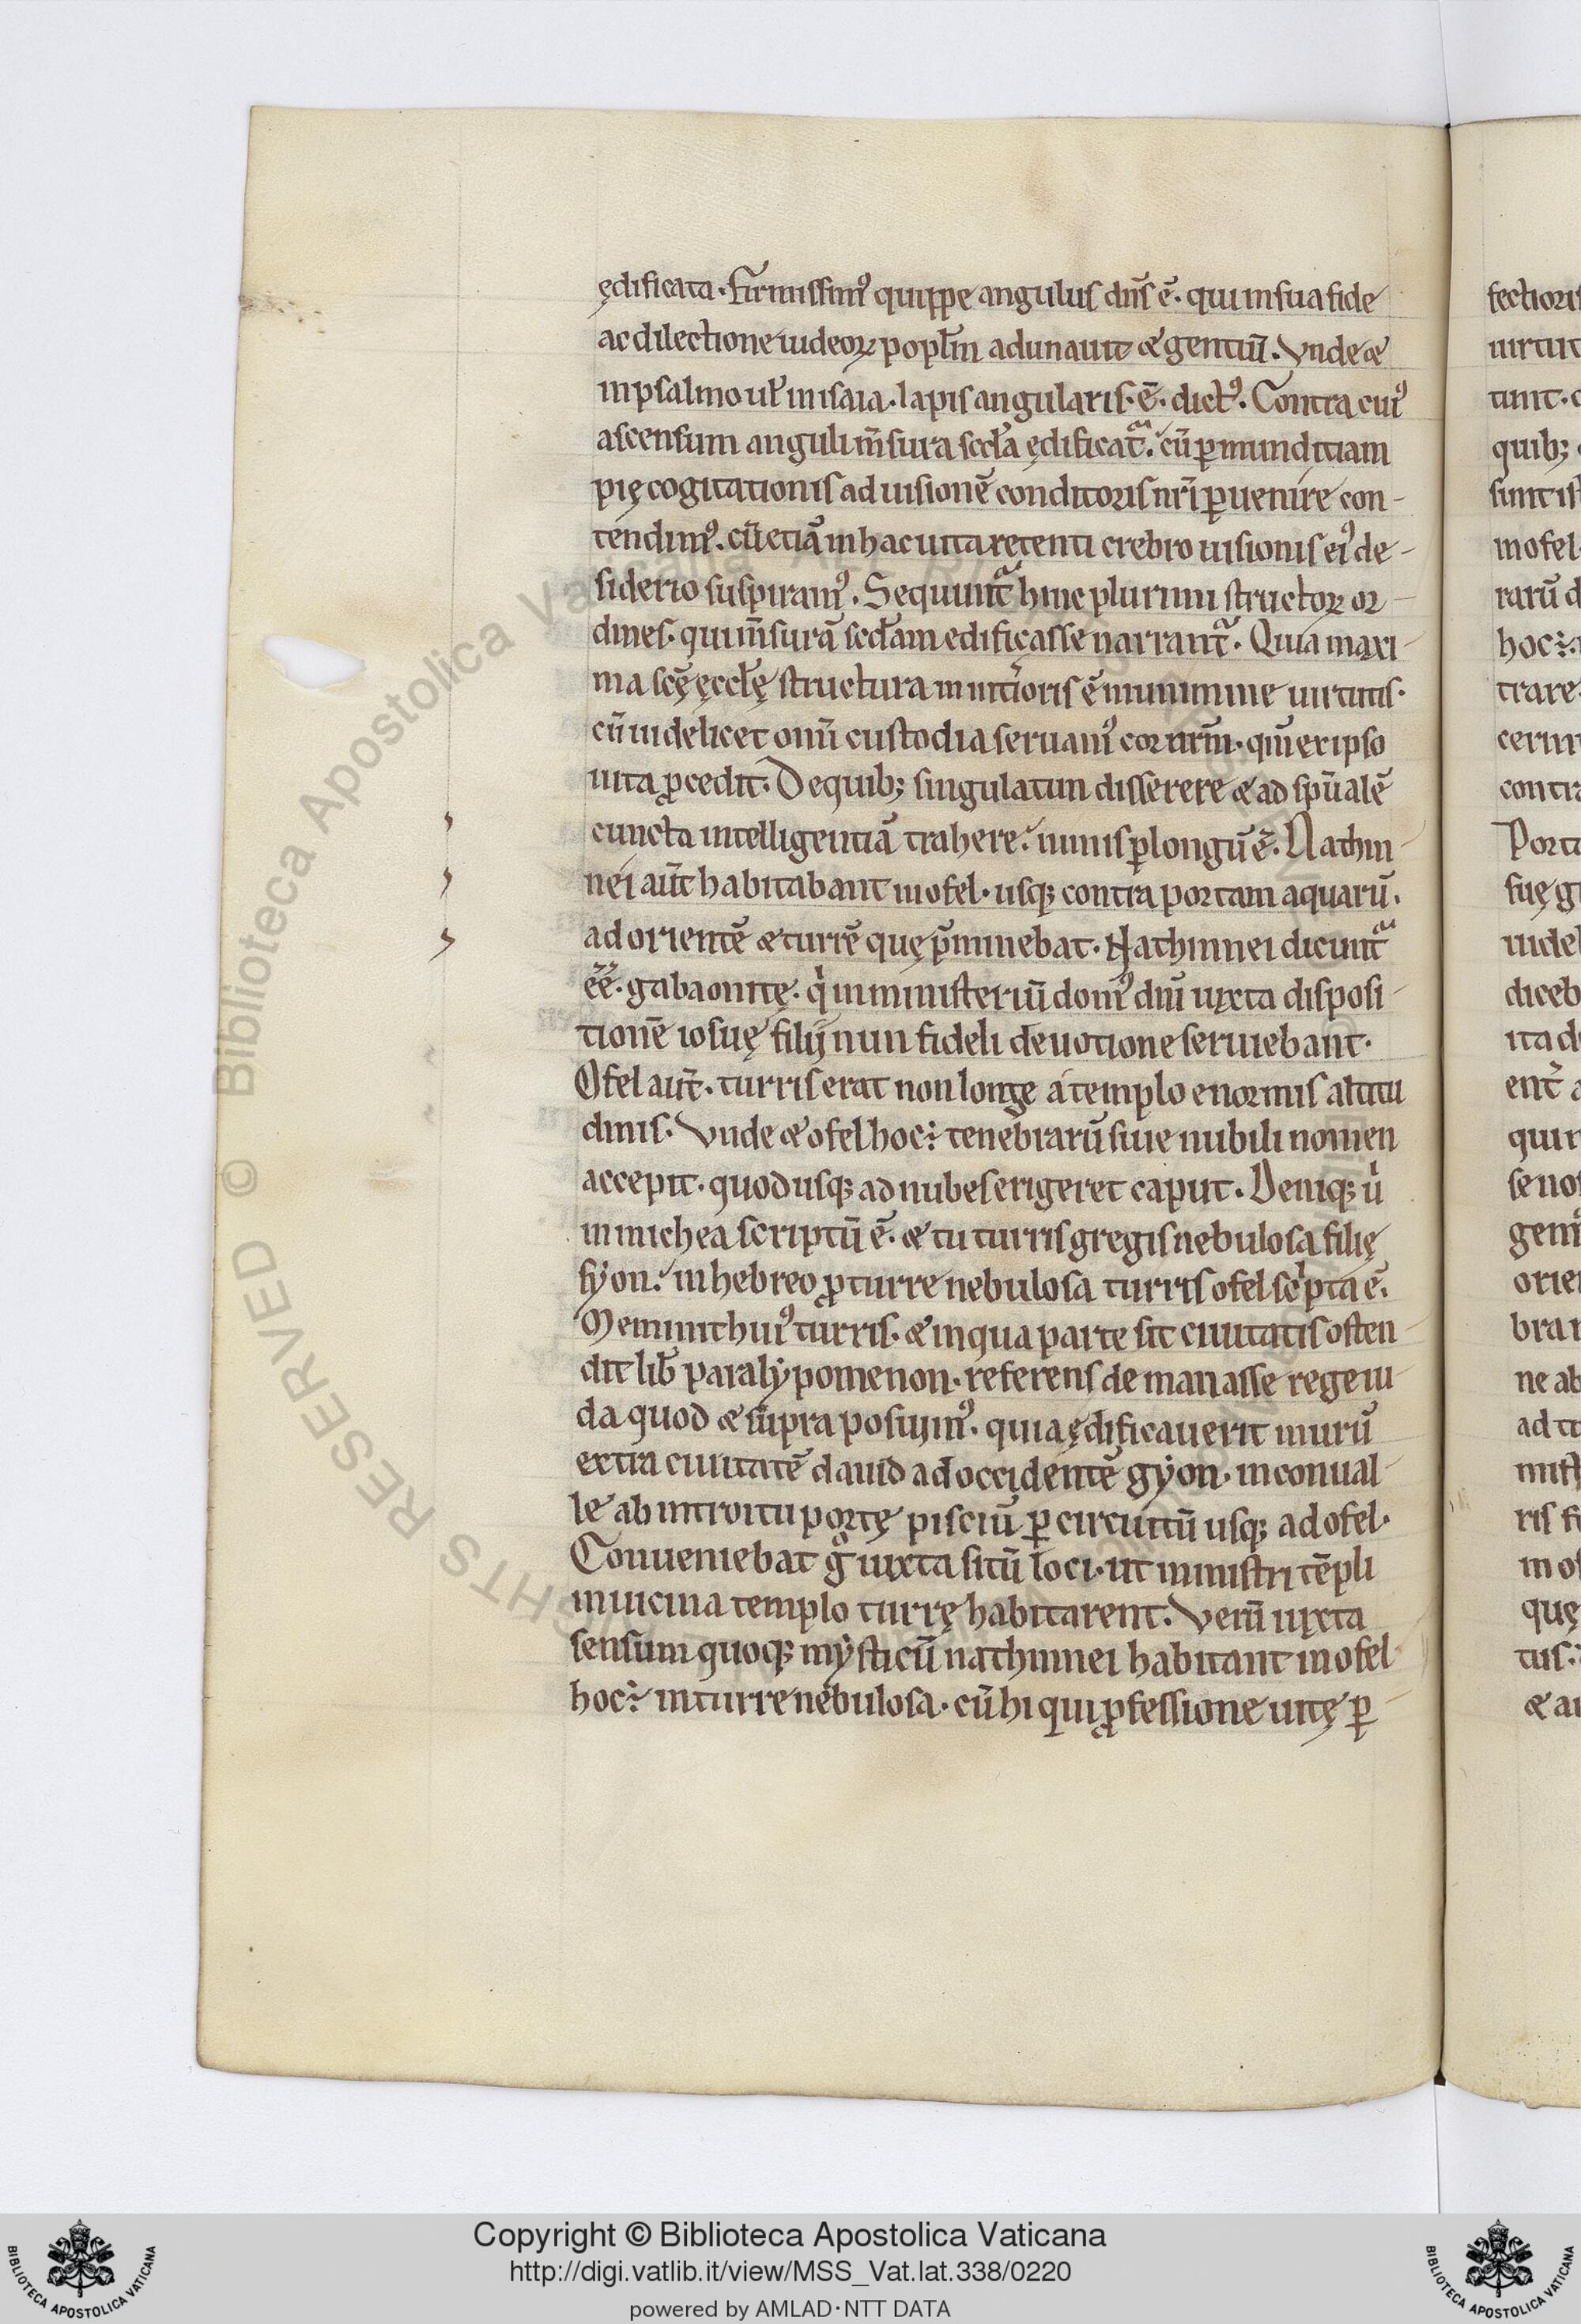 ędificata. Firmissimꝰ quippe angulus dn̄s ē. qui in sua fide
ac dilectione iudeoꝝ popl̄m adunauit & gentiū. Vnde &
in psalmo ul̄ in isaia. lapis angularis. ē. dictꝰ. Contra cuiꝰ
ascensum anguli m̄sura scd̄a ędificat᷑. cū ꝑ munditiam
pię cogitationis ad uisionē conditoris nr̄i ꝑuenire con-
tendimꝰ. cū etiā in hac uita retenti crebro uisionis eiꝰ de-
siderio suspiramꝰ. Sequunt᷑ hinc plurimi structoꝝ or-
dines. qui m̄surā scd̄am edificasse narrant᷑. Quia maxi-
ma scę̄ ęccl̄ę structura in int̄ioris ē munimine uirtutis.
cū uidelicet om̄i custodia seruamꝰ cor nr̄m. qm̄ ex ipso
uita ꝓcedit. De quib; singulatim disserere & ad sp̄ualē
cuncta intelligentiā trahere. nimis plongū ē. Nathin-
nei aūt habitabant in ofel. usq; contra portam aquarū.
ad orientē & turrē quę p̄minebat. Nathinnei dicunt᷑
ee̅. gabaonitę. qͥ in ministeriū domꝰ dn̄i iuxta disposi-
tionē iosuę filij nun fideli deuotione seruiebant.
Ofel aut̄. turris erat non longe a templo enormis altitu
dinis. Vnde & ofel hoc ÷ tenebrarū siue nubili nomen
accepit. quod usq; ad nubes erigeret caput. Deniq; uͥ
in michea scriptū ē. & tu turris gregis nebulosa filię
syon. in hebreo ꝓ turre nebulosa turris ofel scͥpta ē.
Meminit huiꝰ turris. & in qua parte sit ciuitatis osten-
dit lib̄ paralypomenon. referens de manasse rege iu-
da quod & supra posuimꝰ. quia ędificauerit murū
extra ciuitatē dauid ad occidentē gyon. in conual-
le ab introitu portę pisciū ꝑ circuitū usq; ad ofel.
Conueniebat gͦ iuxta sitū loci. ut ministri tēpli
in uicina templo turrę habitarent. Verū iuxta
sensum quoq; mysticū nathinnei habitant in ofel
hoc ÷ in turre nebulosa. cū hi qui ꝓfessione uitę ꝑ
fectioris
quib;
Copyright © Biblioteca Apostolica Vaticana
http://digi.vatlib.it/view/MSS_Vat.lat.338/0220
powered by AMLAD·NTT DATA